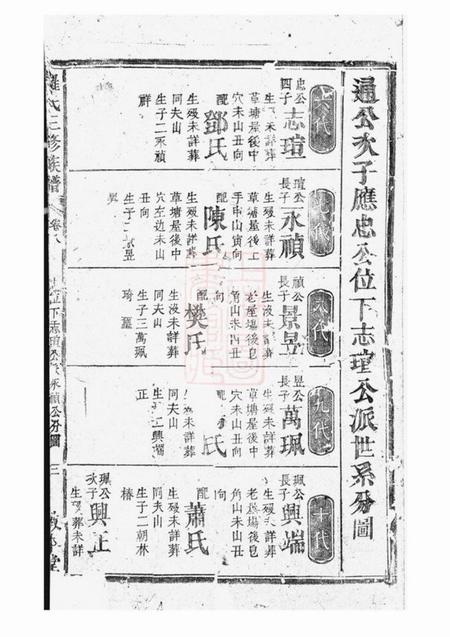 通公次子應忠公位下志瑄公派世系分圖
六代
忠公四子
志瑄
生 未詳葬
草塘屋後中
穴未山丑向
配
鄧氏
生殁未詳葬
同夫山
生子二永禎
七代
瑄公長子
永禎
生殁未詳葬
草塘屋後上
手申山寅向
配
陳氏
生殁未詳葬
草塘屋後中
穴左边未山
丑向
生子二景昱
八代
禎公長子
景昱
生殁未詳葬
老屋塲後皂
角山未山丑
向
配
樊氏
生殁未詳葬
同夫山
生子三萬珮
琦
九代
昱公長子
萬珮
生殁未詳葬
草塘屋後中
穴未山丑向
配
氏
生殁未詳葬
同夫山
生子二興端
正
十代
珮公長子
興端
生殁未詳葬
老屋塲後皂
角山未山丑
向
配
蕭氏
生殁未詳葬
同夫山
生子二朝林
椿
珮公次子
興正
生殁未詳
羅氏三修族譜
卷八
位下志瑄公派永禎公分圖
三
堂